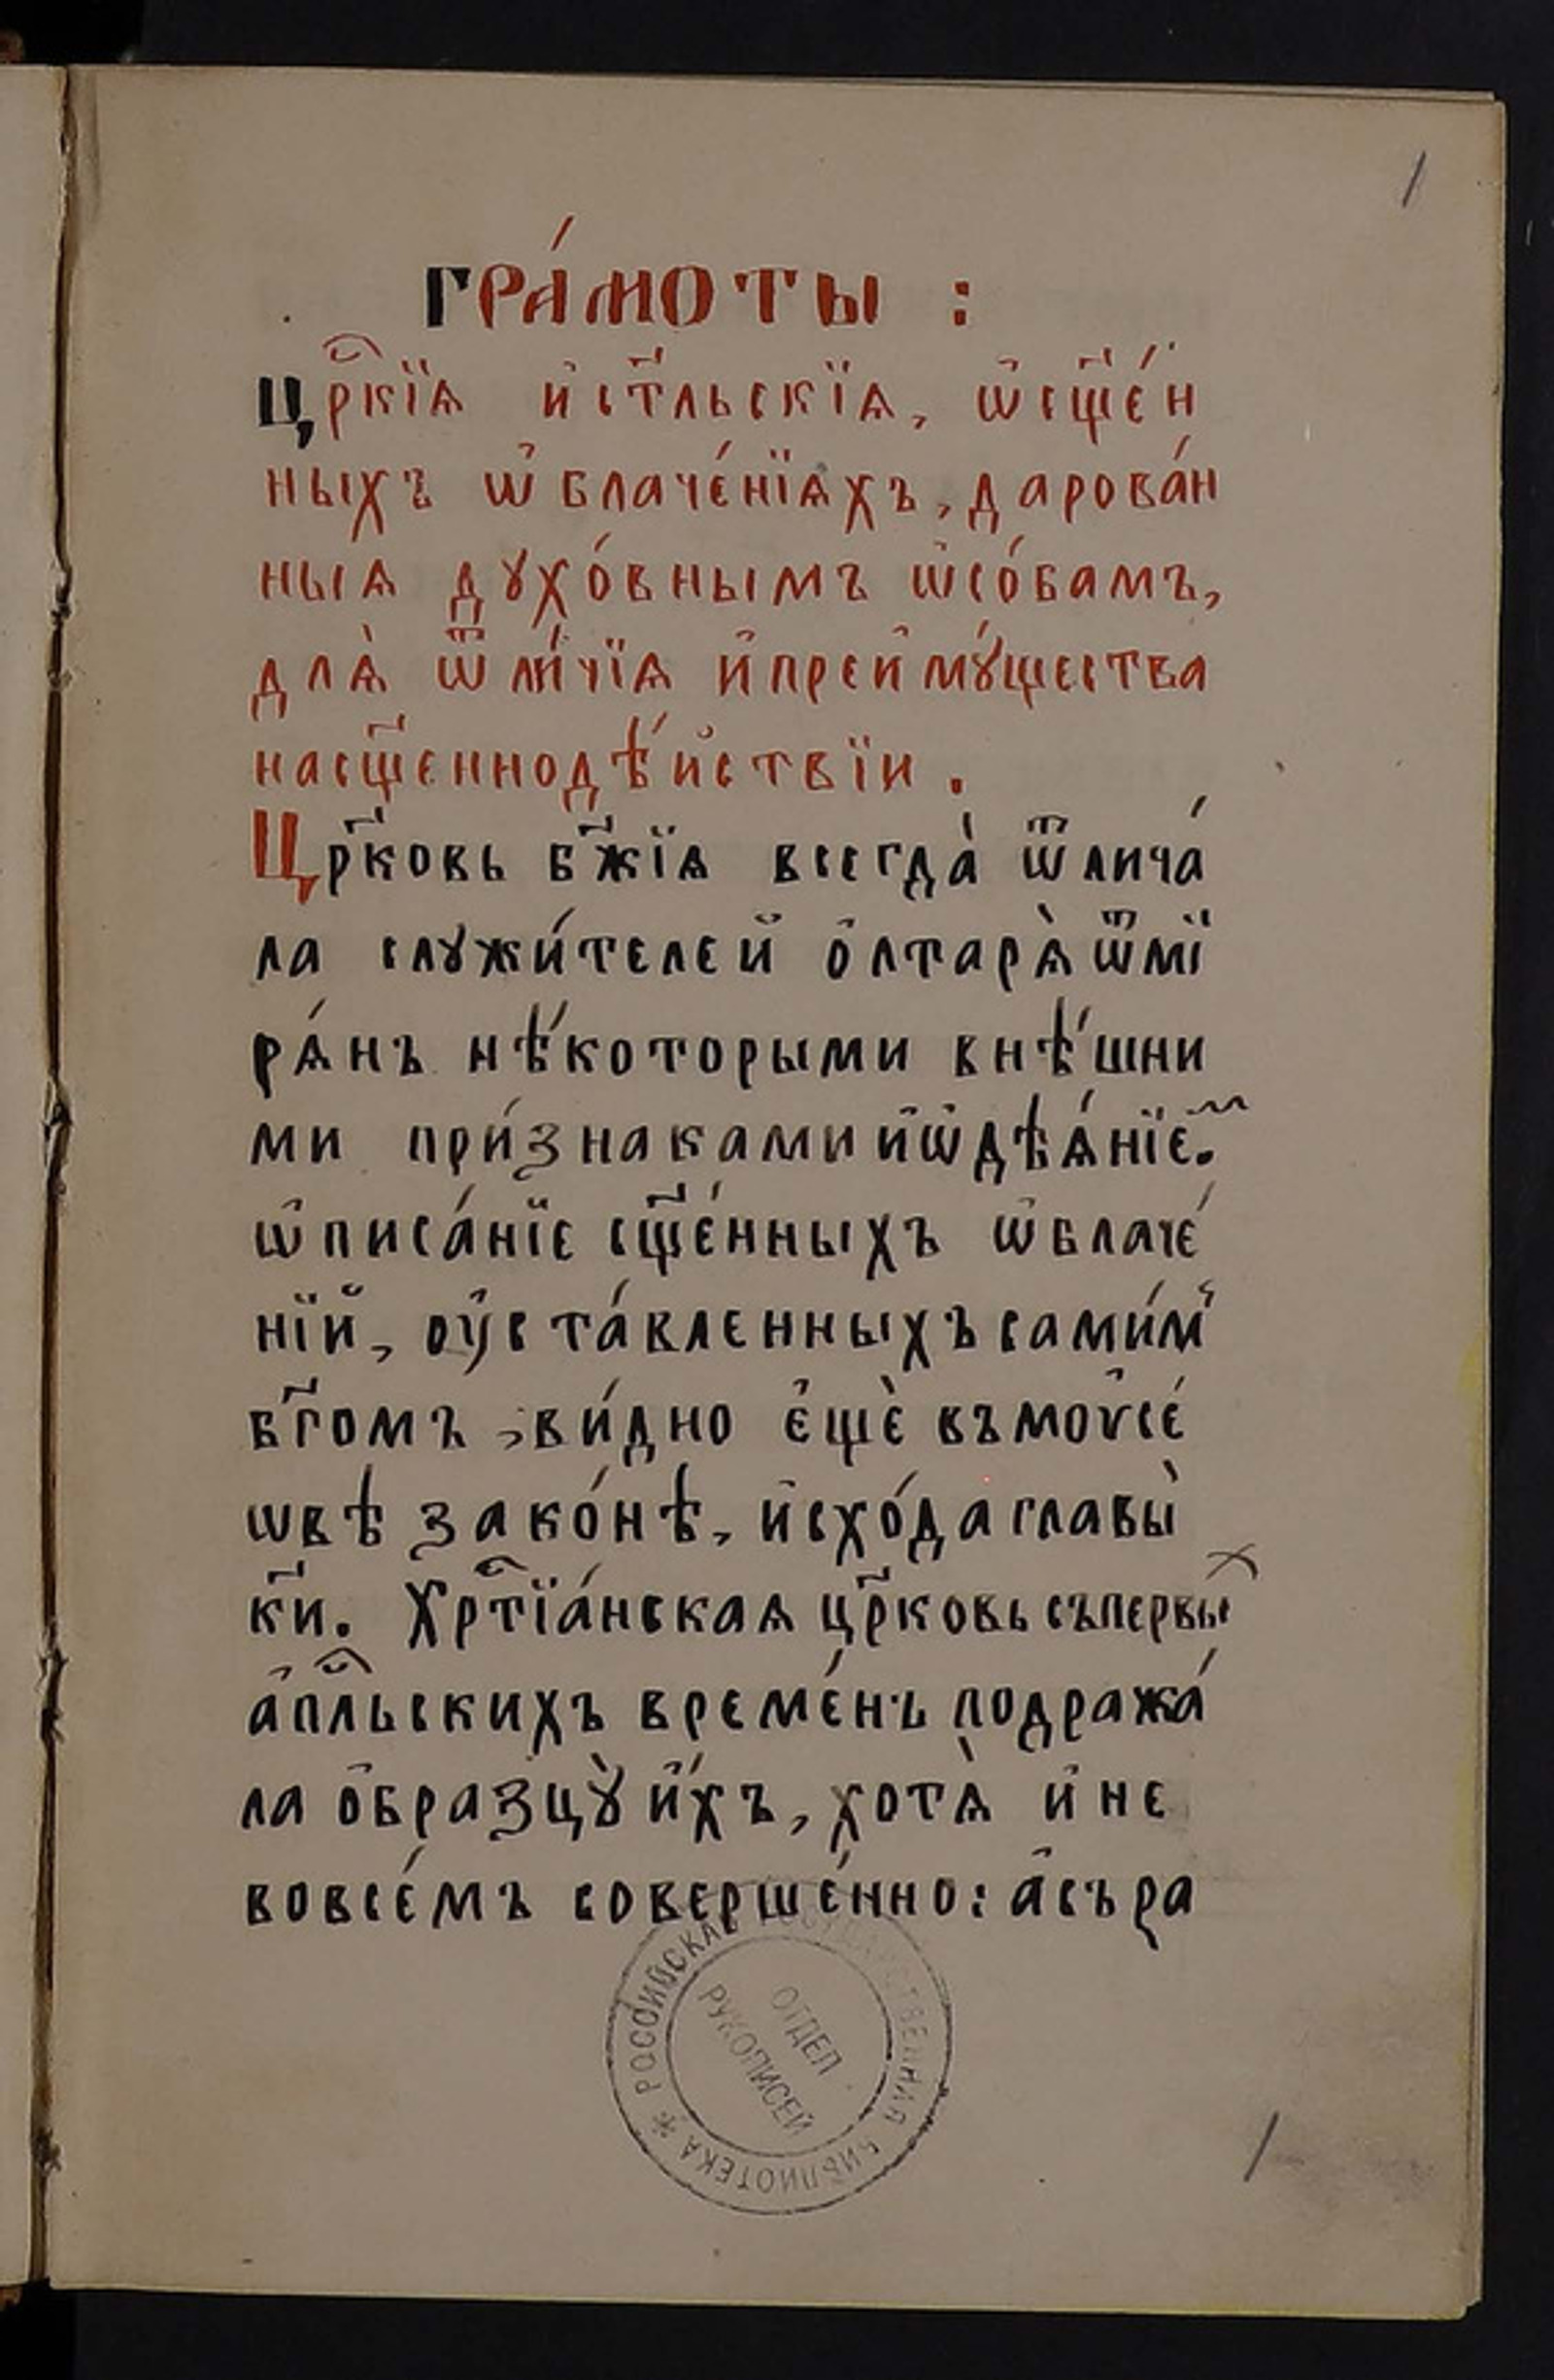 1
Гра́моты :
Цр҇кїѧ и҆ст҃льскїѧ, ѡ҆сщ҃е́н
ныхъ ѡ҆блаче́нїѧхъ, дарова́н
ныѧ дꙋхо́внымъ ѡ҆со́бамъ,
длѧ̀ ѿли́чїѧ и҆преи҆мꙋ́щества
насщ҃еннодѣ́йствїи.
Цр҃ковь бж҃їѧ всегда̀ ѿлича́
ла слꙋжи́телей о҆лтарѧ̀ ѿмї
рѧ́нъ нѣ́которыми внѣ́шни
ми при́знаками и҆ѡ҆дѣѧ́нїеⷨ.
ѡ҆писа́нїе сщ҃е́нныхъ ѡ҆блаче́
нїй, оу҆ста́вленныхъ сами́м̾
бг҃омъ, ви́дно є҆щѐ въмоѵ҆се́
ѡвѣ зако́нѣ, и҆схо́да главы̀
к҃и. Хрⷭ҇тїа́нскаѧ цр҃ковь съпервыⷯ
а҆пⷭ҇льскихъ време́нъ подража́
ла о҆бразцꙋ̀ и҆́хъ, хотѧ̀ и҆ не
вовсе́мъ соверше́нно: а҆съра
РОССИЙСКАЯ ГОСУДАРСТВЕННАЯ БИБЛИОТЕКА *
ОТДЕЛ
РУКОПИСЕЙ
1